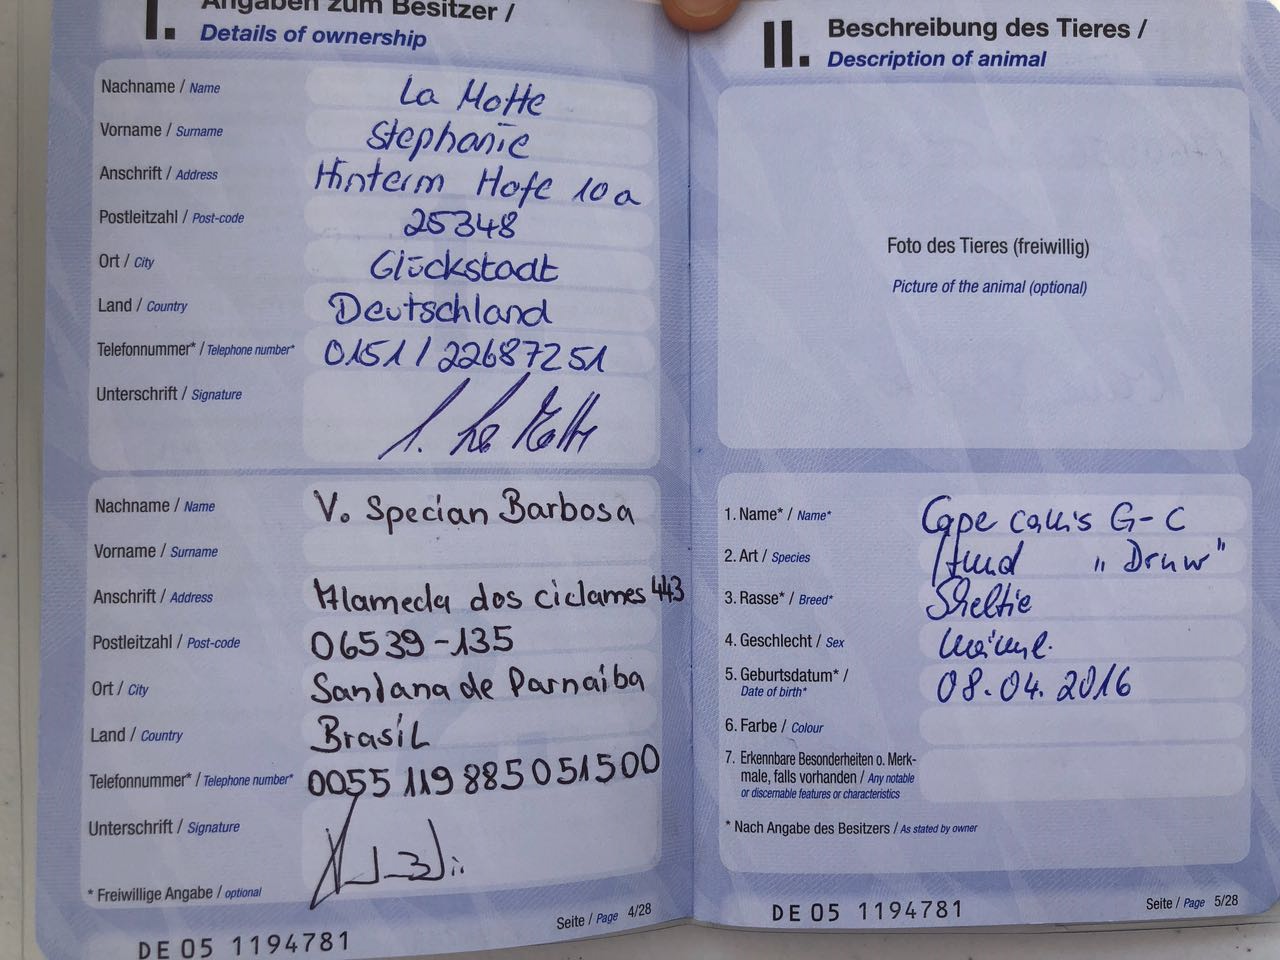 I. Angaben zum Besitzer /
Details of ownership
Nachname / Name La Motte
Vorname / Surname Stephanie
Anschrift / Address Hinterm Hofe 10a
Postleitzahl / Post-code 25348
Ort / City Glückstadt
Land / Country Deutschland
Telefonnummer* / Telephone number* 0151 / 22687251
Unterschrift / Signature S. La Motte
Nachname / Name V. Specian Barbosa
Vorname / Surname
Anschrift / Address Alameda dos ciclames 443
Postleitzahl / Post-code 06539-135
Ort / City Santana de Parnaiba
Land / Country Brasil
Telefonnummer* / Telephone number* 0055 119 885051500
Unterschrift / Signature
* Freiwillige Angabe / optional
Seite / Page 4/28
DE 05 1194781
II. Beschreibung des Tieres /
Description of animal
Foto des Tieres (freiwillig)
Picture of the animal (optional)
1. Name* / Name* Cape G-C
2. Art / Species Hund
3. Rasse* / Breed* Sheltie
4. Geschlecht / Sex männl.
5. Geburtsdatum* / 08.04.2016
Date of birth*
6. Farbe / Colour
7. Erkennbare Besonderheiten o. Merk-
male, falls vorhanden / Any notable
or discernable features or characteristics
* Nach Angabe des Besitzers / As stated by owner
Seite / Page 5/28
DE 05 1194781